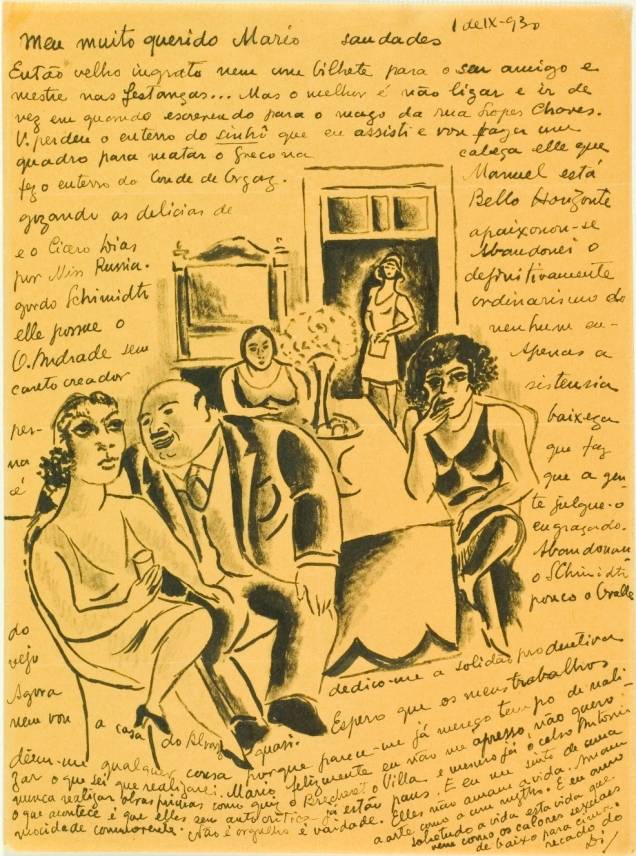 1 de IX-930
Meu muito querido Mario saudades
Então velho ingrato nem um bilhete para o seu amigo e
mestre nas festanças... Mas o melhor é não ligar e ir de
vez em quando escrevendo para o mago da rua Lopes Chaves.
V. perdeu o enterro do Sinhô que eu assisti e vou fazer um
quadro para matar o Greco na cabeça elle que
fez o enterro do Conde de Orgaz. Manuel está
gozando as delicias de Bello Horizonte
e o Cicero Dias apaixonou-se
por Miss Russia. Abandonei o
gordo Schimidt definitivamente
elle possue o ordinarismo do
O. Andrade sem nenhum en-
canto creador Apenas a
sistencia
per- baixeza
na que faz
é que a gen-
te julgue-o
engraçado.
Abandonan
do o Schimidt
vejo pouco o Ovalle
Agora dedico-me a solidão productiva
nem vou a casa do Alvaro quasi. Espero que os meus trabalhos
dêem-me qualquer cousa porque parece-me já mereço tempo de reali-
zar o que sei que realizarei. Mario, felizmente eu não me apresso, não quero
nunca realizar obras primas como quiz o Brecheret o Villa e mesmo já o Celso Antonio
o que acontece é que elles sem autocritica já estão paus. E eu me sinto de uma
mocidade commovente. Não é orgulho é vaidade. Elles não amam a vida. Amam
a arte como a um mytho. E eu amo
sobretudo a vida esta vida que
vem como os calores sexuaes
de baixo para cima.
recado do
Di